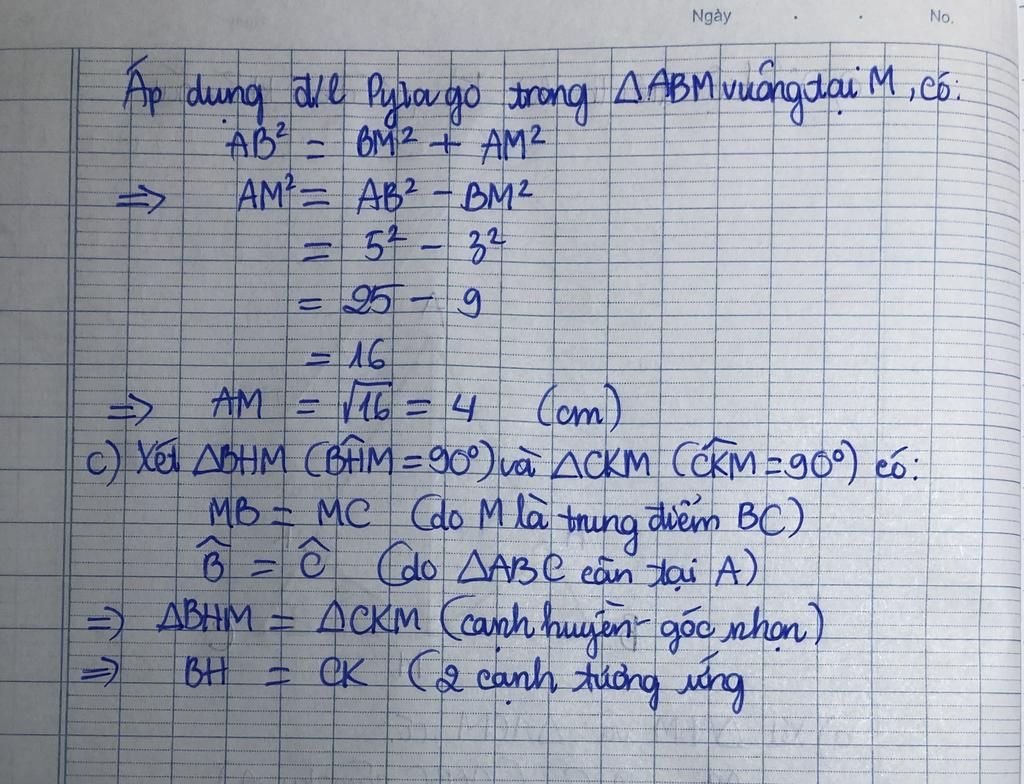 Ngày . . No.
Áp dụng đ/l Pytago trong ΔABM vuông tại M, có:
AB² = BM² + AM²
=> AM² = AB² - BM²
= 5² - 3²
= 25 - 9
= 16
=> AM = √16 = 4 (cm)
c) Xét ΔBHM (BĤM = 90°) và ΔCKM (CK̂M = 90°) có:
MB = MC (do M là trung điểm BC)
B̂ = Ĉ (do ΔABC cân tại A)
=> ΔBHM = ΔCKM (cạnh huyền - góc nhọn)
=> BH = CK (2 cạnh tương ứng